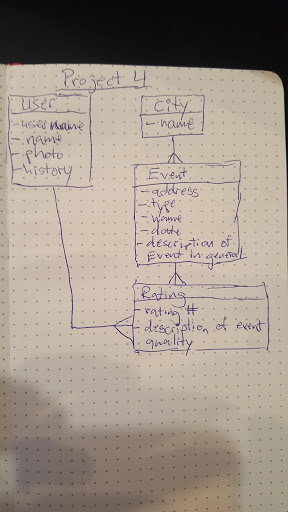 Project 4
User
- username
- name
- photo
- history
City
- name
Event
- address
- type
- name
- date
- description of
Event in general
Rating
- rating #
- description of event
quality